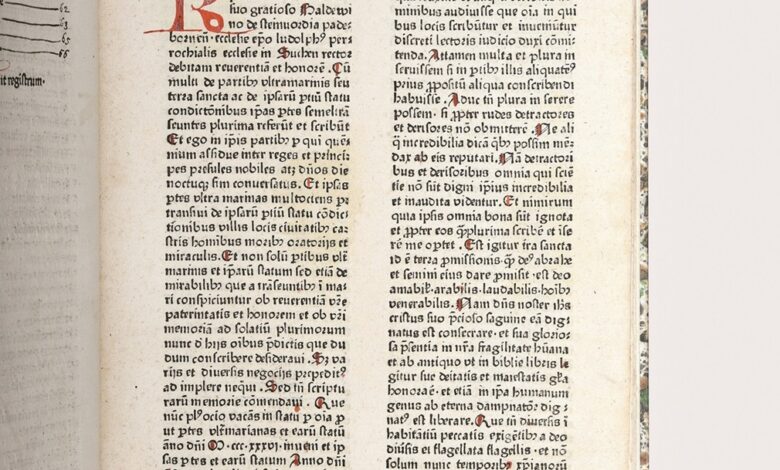 62
65
66
it registrum·
R
ſiuo gratioſo Baldewi
no de ſteinuordia pade
bornen̄· eccleſie ep̄o ludolphꝰ per
rochialis eccleſie in Suchen rector
debitam reuerentiā et honorē· Cū
multi de partib̄ ultramarinis ſeu
terra sancta ac de ipſarū p̄tiū ſtatu
condictōnibus ip̄as p̄tes ſemel trāſ
ſeuntes plurima referūt et ſcribūt
Et ego in ip̄is partib̄ p̄ qui quē
nium aſſidue inter reges et princi
pes preſules nobiles atq̄ dn̄os die
noctuq̄ ſim conuerſatus· Et ipſas
p̄tes vltra marinas multocens p̄
tranſiui de ipſarū p̄tiū ſtatu cōdic
tionibus villis locis ciuitatib̄ ca
ſtris hoīnibus morib̄ oratorijs et
miraculis· Et non ſolū p̄tibus vlt
marinis et ip̄arū ſtatum ſed etiā de
mirabilib̄ que a trāſeuntib̄ ī ma
ri conſpiciuntur ob reuerentiā vr̄e
paternitatis et honorem et ob vri
memoriā ad ſolatiū plurimorum
nunc d̄ hijs oībus p̄dictis que du
dum conſcribere deſideraui· Sȝ va
rijs et diuerſis negocijs prepeditꝰ
ad implere neq̄ui· Sed tn̄ ſcriptu
rarū memorie comendaui· Que
nūc plꝰ ocio vacās in ſtatu p̄ oīa p̄
ut p̄tes vltramarinas et earū ſtatū
anno dn̄i M· ccc· xxxvi· inueni et ip
ſas p̄tes et earū ſtatum Anno dn̄i
minibus audiuiſſe que oīa in qui
bus locis ſcribūtur et inueniūtur
diſcreti lectoris iudicio duxi cōmi
tenda· Attamen multa et plura in
ſcruiſſem ſi in p̄tib̄ illis aliquatē
prius p̄poſitū aliqua conſcribendi
habuiſſe· Adue tn̄ plura in ſerere
poſſem· ſi p̄pter rudes detractores
et deriſores nō obmitterē· Ne ali
q̄ incredibilia dicā q̄b̄ poſſim mē
dax ab eis reputari· Nā detractori
bus et deriſoribus omnia qui ſciē
tie nō ſūt digni ip̄ius incredibilia
et inaudita videntur· Et nimirum
quia ipſis omnia bona ſūt ignota
et p̄pter eos q̄mplurima ſcribē et iſe
rē me optet· Eſt igitur ſra ſancta
id ē terra p̄miſſionis· q̄ deꝰ abrahe
et ſemini eius dare p̄miſit· eſt deo
amabilis· laudabilis·
venerabilis· Nam dn̄s noſter ih̄s
criſtus ſuo p̄cioſo ſaguine eā dig
natus eſt conſecrare· et ſua glorioſ
ſa p̄ſentia in nr̄a fragilitate hūana
et ab antiquo vt in biblie libris le
gitur ſue deitatis et maieſtatis gr̄a
honorae· et etiā in ip̄a humanum
genus ab eterna dampnatōe dig
natꝰ eſt liberare· Que tn̄ diuerſis ī
habitātiū peccatis exigētib̄ a deo
diuſis et flagellata flagellis· et nō
ſolum nunc temporib̄ xp̄ianorū